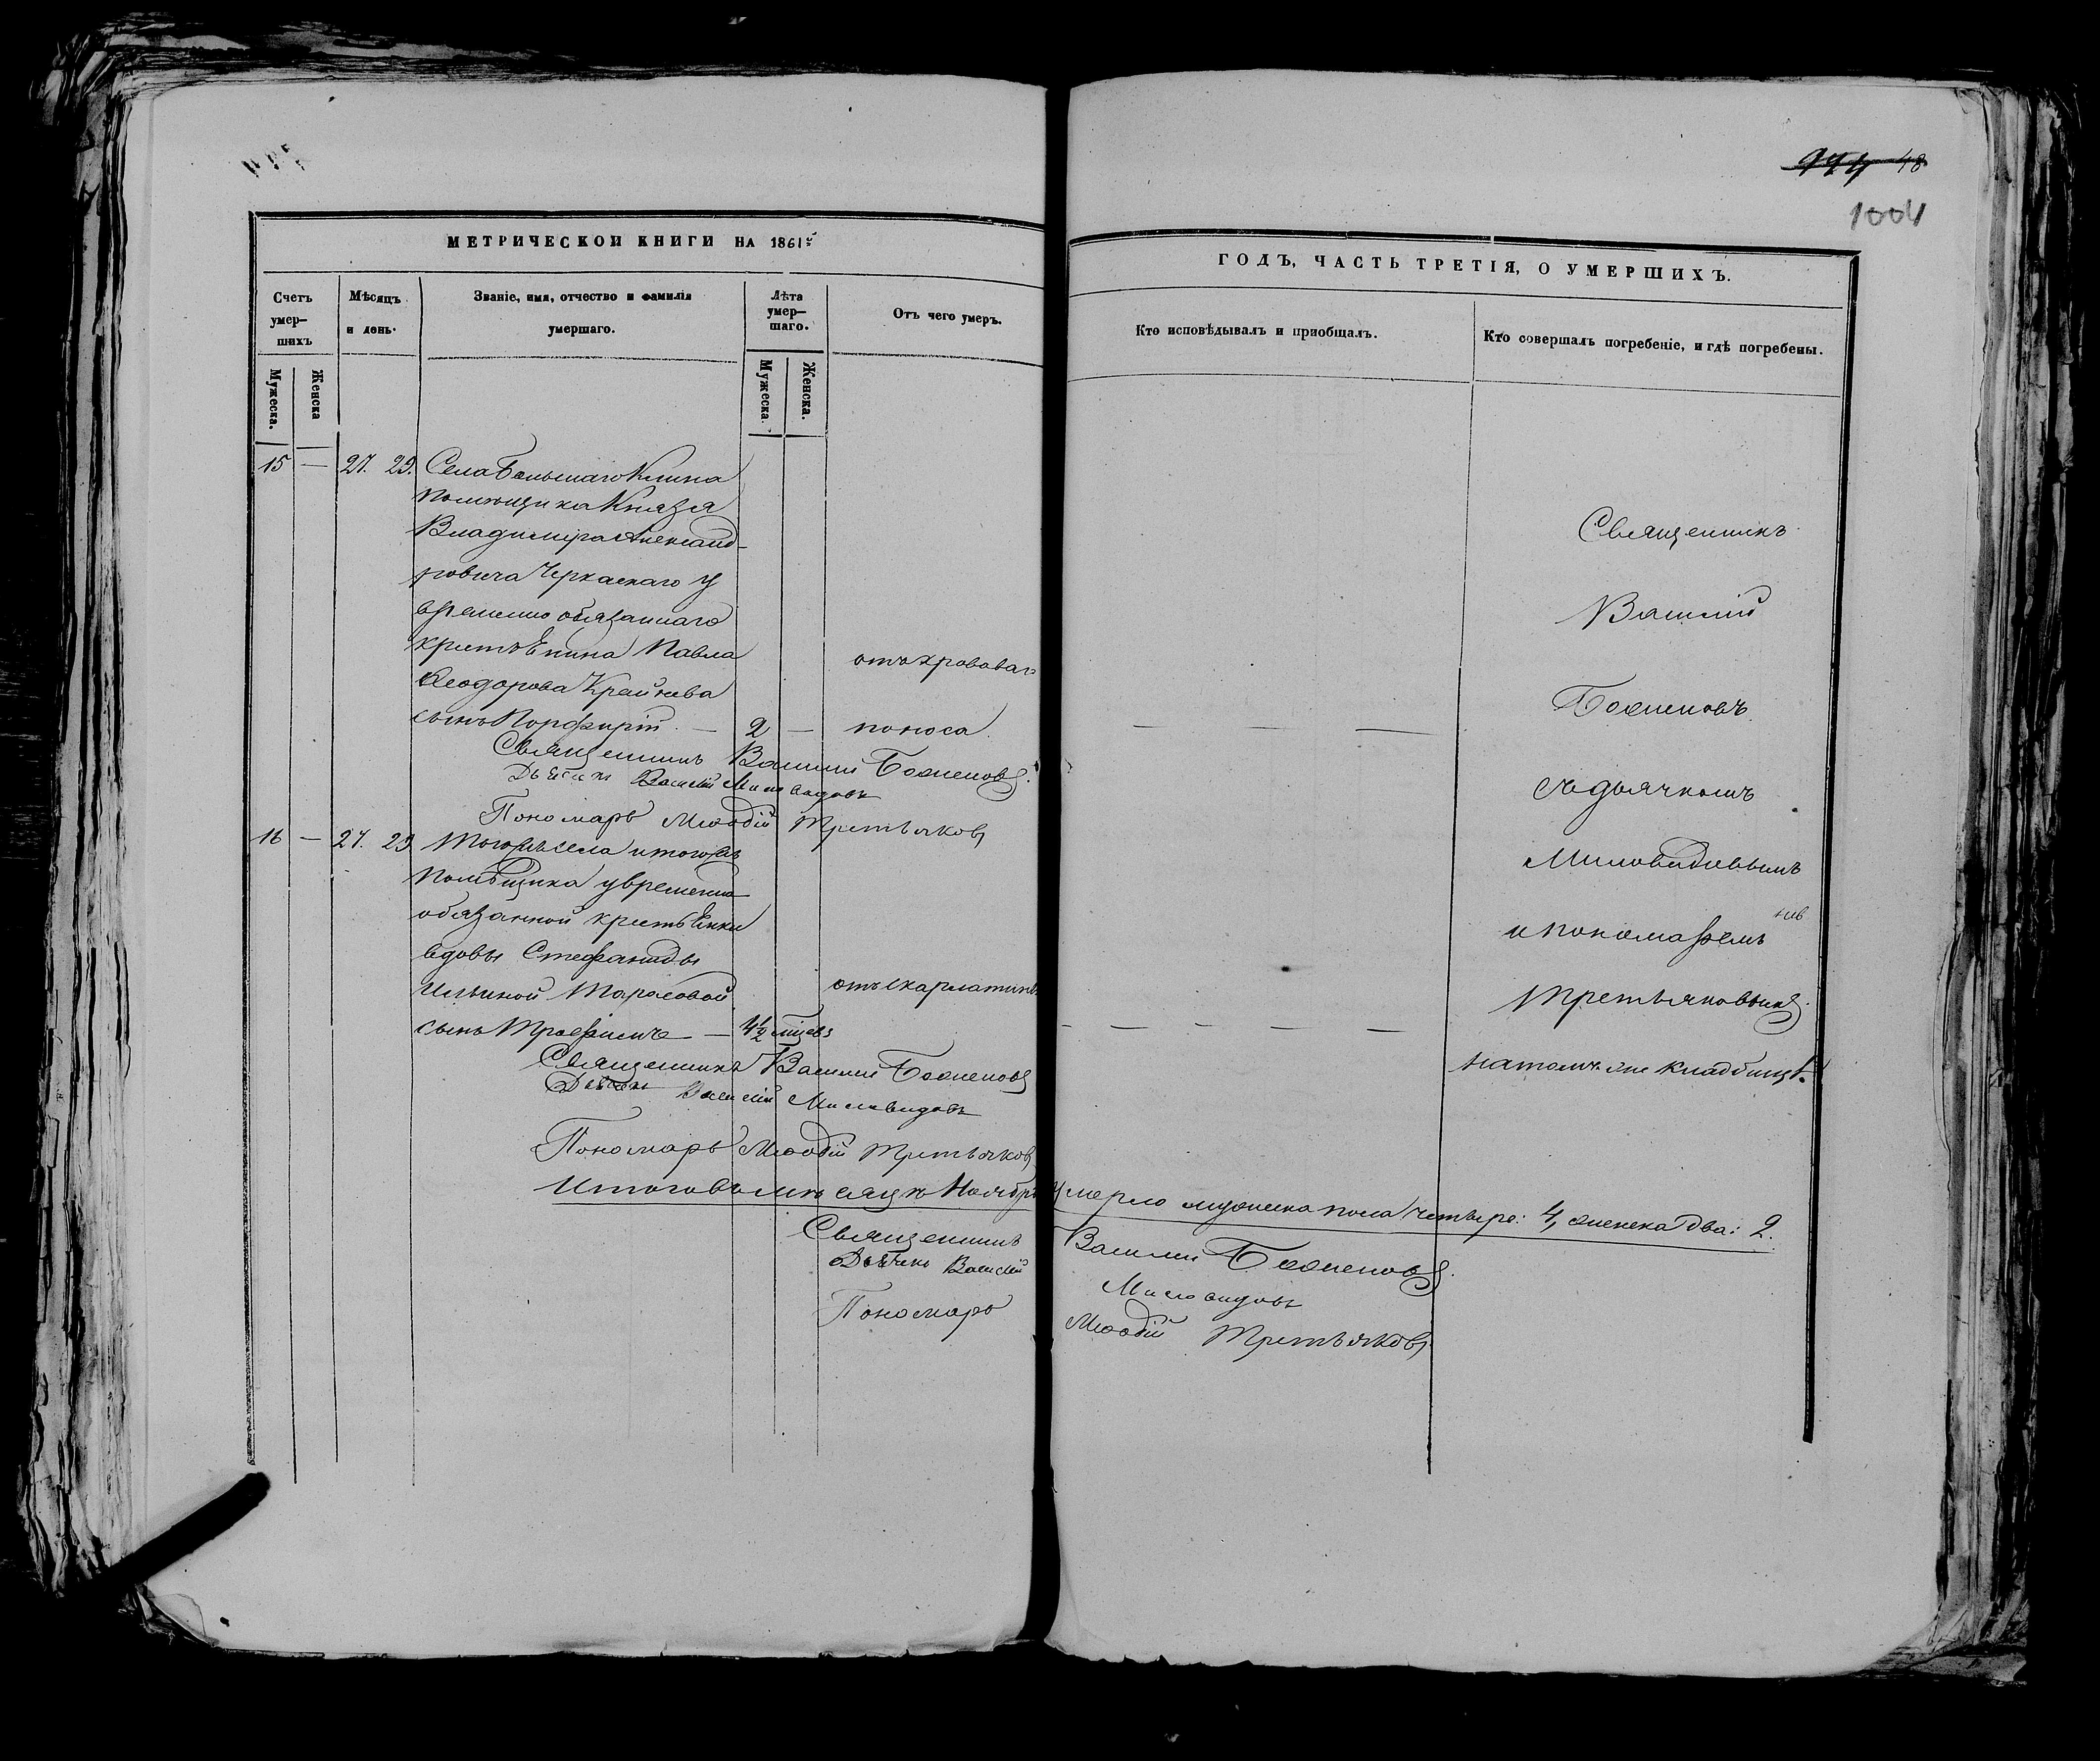 48
1004
МЕТРИЧЕСКОЙ КНИГИ НА 1861й
ГОДЪ, ЧАСТЬ ТРЕТІЯ, О УМЕРШИХЪ.
Счетъ умер-шихъ
Мѣсяцъ и день.
Званіе, имя, отчество и фамилія умершаго.
Лѣта умер-шаго.
Отъ чего умеръ.
Кто исповѣдывалъ и приобщалъ.
Кто совершалъ погребеніе, и гдѣ погребены.
Мужеска.
Женска
Мужеска.
Женска.
15 — 27. 29. Села Большаго Клина
помѣщика Князя
Владимира Александ-
ровича Черкаскаго у
временно обязаннаго
крестьянина Павла
Ѳеодорова Крайнева
сынъ Порфирій — 2 —
отъ кроваваго
поноса
Священникъ Василій Боженовъ
Дьячекъ Василій Миловидовъ
Пономарь Меѳодій Третьяковъ
16 — 27. 29 Тогожъ села и тогожъ
помѣщика у временно
обязанной крестьянки
вдовы Стефаниды
Ильиной Тарасовой
сынъ Трофимъ — 4½ мѣсяцъ
отъ скарлатины
Священникъ Василій Боженовъ
Дьячекъ Василій Миловидовъ
Пономарь Меѳодій Третьяковъ
Священникъ
Василій
Боженовъ
съ дьячкомъ
Миловидовымъ
и пономаремъ
Третьяковымъ
на томъ же кладбищѣ.
Итого въ мѣсяцѣ Ноябрѣ умерло мужеска пола четыре: 4, женска два: 2.
Священникъ Василій Боженовъ
Дьячекъ Василій Миловидовъ
Пономарь Меѳодій Третьяковъ